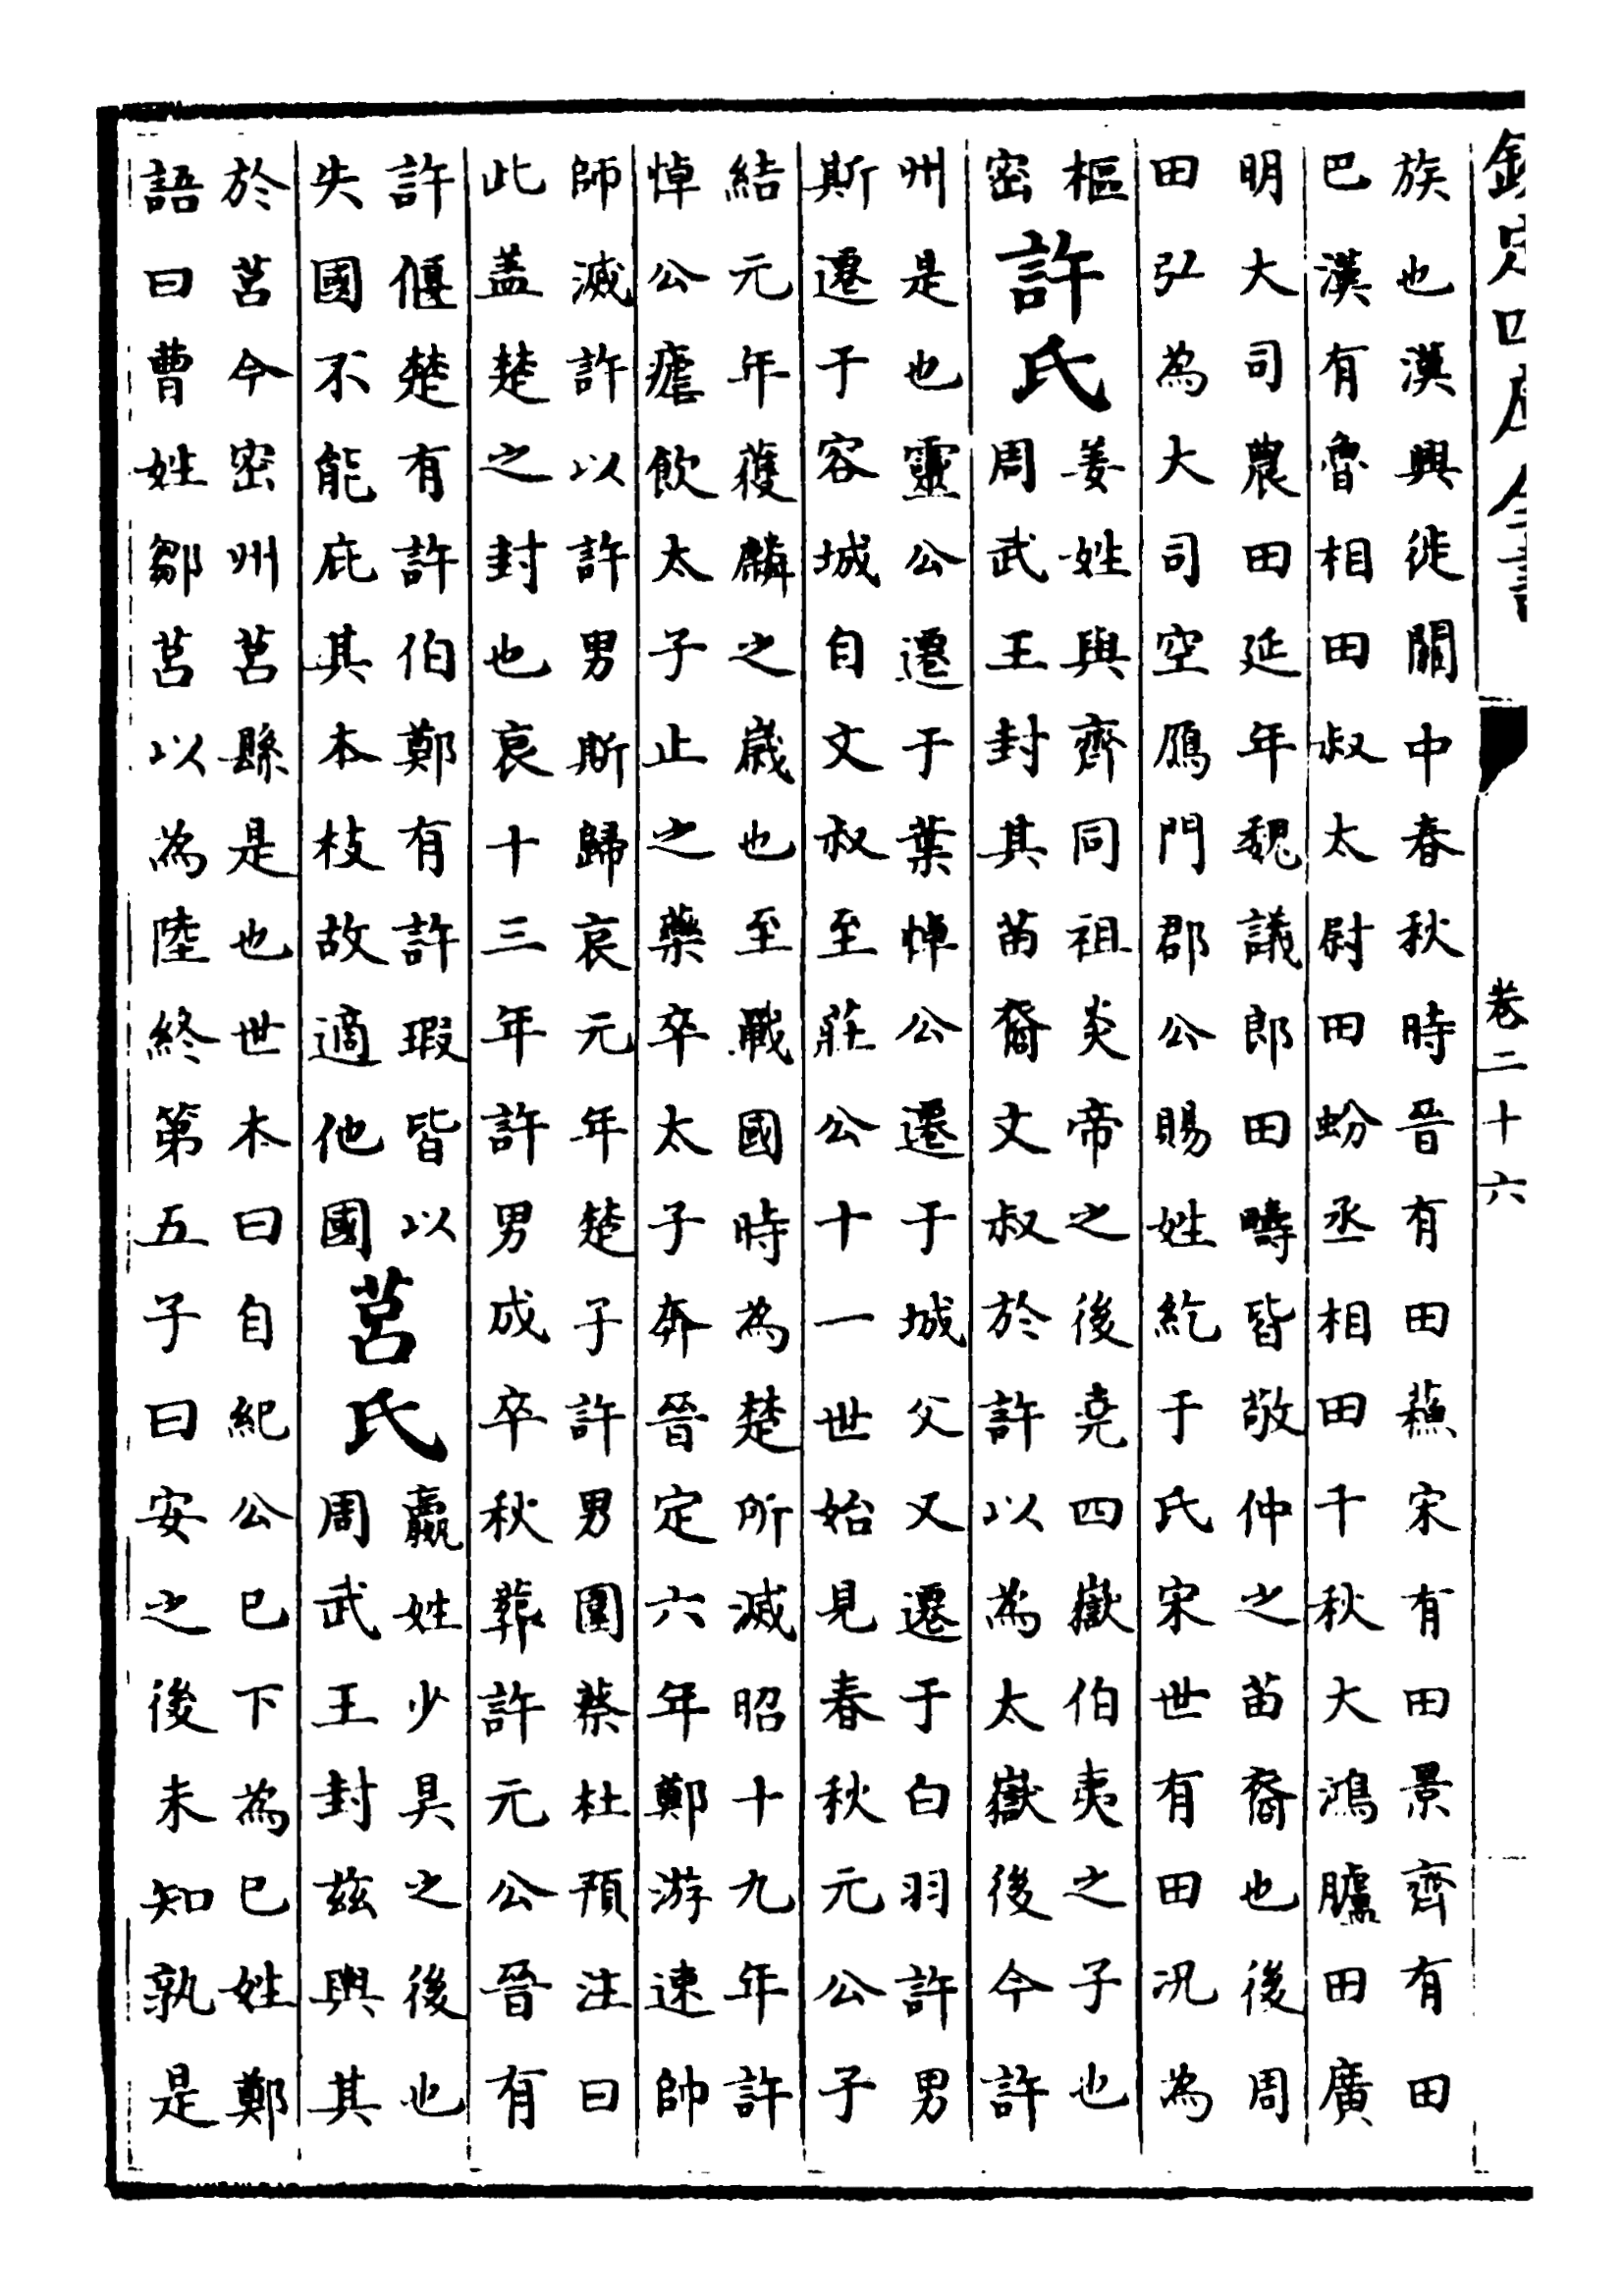 欽定四庫全書 卷二十六
族也漢興徙關中春秋時晉有田蘇宋有田景齊有田
巴漢有魯相田叔太尉田蚡丞相田千秋大鴻臚田廣
明大司農田延年魏議郎田疇皆敬仲之苗裔也後周
田弘為大司空鴈門郡公賜姓紇于氏宋世有田况為
樞
密
許氏
姜姓與齊同祖炎帝之後堯四嶽伯夷之子也
周武王封其苗裔文叔於許以為太嶽後今許
州是也靈公遷于葉悼公遷于城父又遷于白羽許男
斯遷于容城自文叔至莊公十一世始見春秋元公子
結元年獲麟之歲也至戰國時為楚所滅昭十九年許
悼公瘧飲太子止之藥卒太子奔晉定六年鄭游速帥
師滅許以許男斯歸哀元年楚子許男圍蔡杜預注曰
此盖楚之封也哀十三年許男成卒秋葬許元公晉有
許偃楚有許伯鄭有許瑕皆以
失國不能庇其本枝故適他國
莒氏
嬴姓少昊之後也
周武王封兹輿其
於莒今密州莒縣是也世本曰自紀公巳下為巳姓鄭
語曰曹姓鄒莒以為陸終第五子曰安之後未知孰是